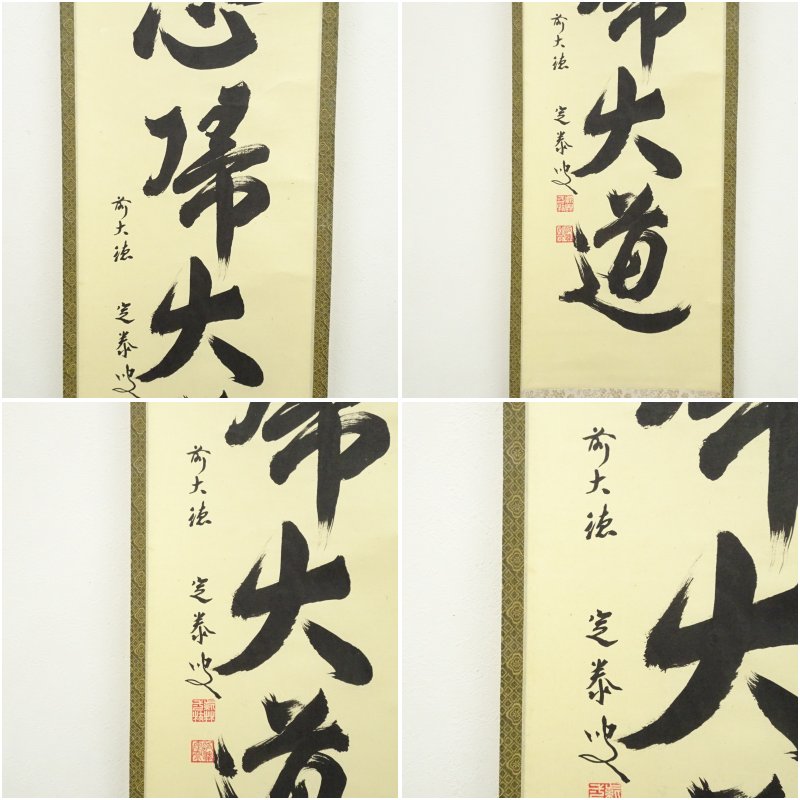 心帰大
前大徳 定泰叟
帰大道
前大徳 定泰叟
帰大道
前大徳 定泰叟
大
前大徳 定泰叟